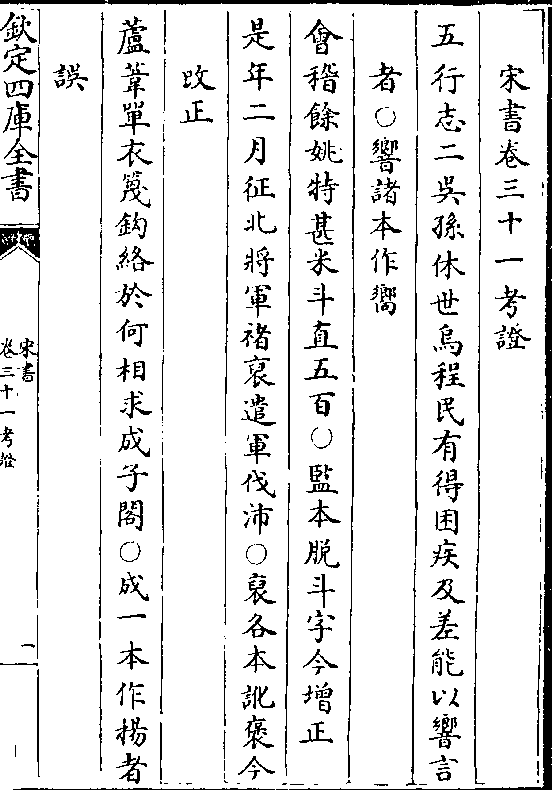 宋書卷三十一考證
五行志二吳孫休世烏程民有得困疾及差能以響言
者○響諸本作嚮
會稽餘姚特甚米斗直五百○監本脫斗字今增正
是年二月征北將軍禇裒遣軍伐沛○裒各本訛褒今
改正
蘆葦單衣篾鈎絡於何相求成子閣○成一本作揚者
誤
欽定四庫全書
宋書
卷三十一考證
一